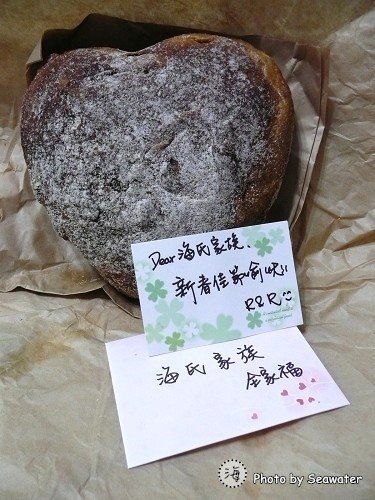 Dear 海氏家族、
新春佳節愉快!!
R&R
海氏家族
全家福
海 Photo by Seawater